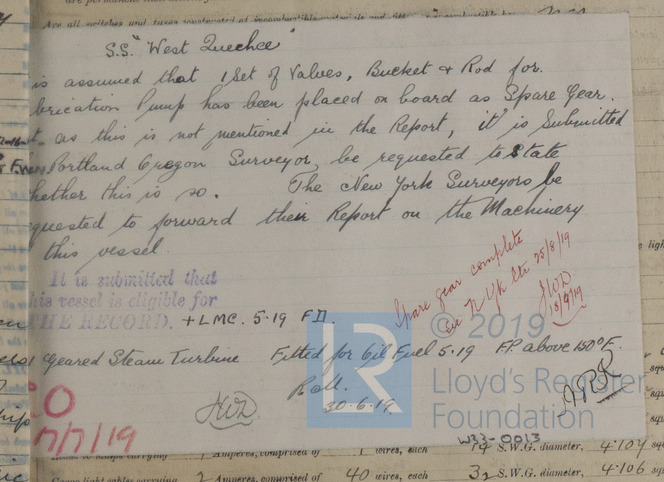 are permanently
Are all switches and fuses constructed of incombustible materials and
S.S. "West Quechee"
is assumed that 1 Set of Valves, Bucket & Rod for
brication Pump has been placed on board as Spare Gear.
t. as this is not mentioned in the Report, it is Submitted
Portland Oregon Surveyor, be requested to State
hether this is so. The New York Surveyors be
quested to forward their Report on the Machinery
this vessel.
It is submitted that
his vessel is eligible for
THE RECORD. + LMC. 5.19 F.D
Spare gear complete
see N.Y/k Ltr 25/8/19
JWD
18/9/19
geared Steam Turbine Fitted for Oil Fuel 5.19 F.P. above 150°F.
30.6.19.
JWD
JRR
17/7/19
© 2019
LR
Lloyd's Register
Foundation
W33-0013
Amperes, comprised of 1 wires, each 14 S.W.G. diameter, 4104 squ
2 Amperes, comprised of 40 wires, each 32 S.W.G. diameter, 4106 squ